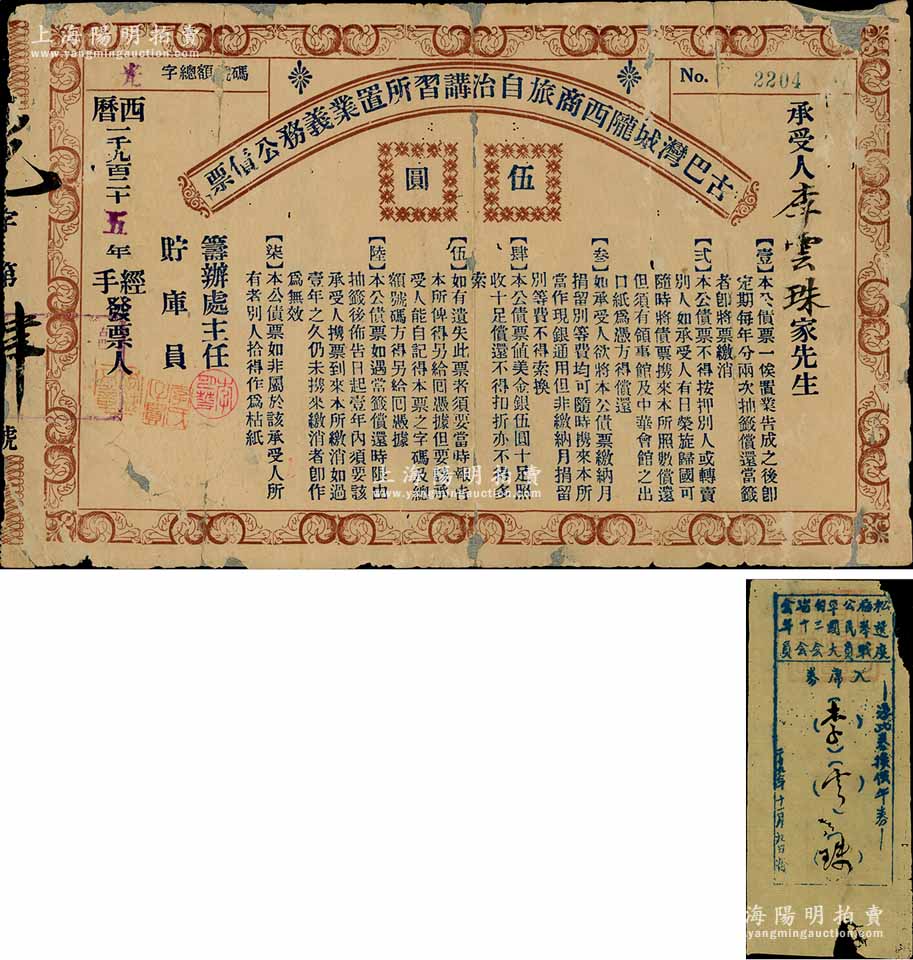 上海陽明拍賣
www.yangmingauction.com
號碼額總字
光
No. 2204
古巴灣城隴西商旅自治講習所置業義務公債票
伍圓
承受人李雲珠家先生
【壹】本公債票一俟置業告成之後卽
定期每年分兩次抽籤償還當籤
者卽將票繳消
【弍】本公債票不得按押別人或轉賣
別人如承受人有日榮旋歸國可
隨時將債票携來本所照數償還
但須有領事館及中華會館之出
口紙爲憑方得償還
【叁】如承受人欲將本公債票繳納月
捐留別等費均可隨時携來本所
當作現銀通用但非繳納月捐留
別等費不得索換
【肆】本公債票値美金銀伍圓十足照
收十足償還不得扣折亦不得多
索
【伍】如有遺失此票者須要當時報告
本所俾得另給囘憑據但要該承
受人能自記得本票之字碼及總
額號碼方得另給囘憑據
【陸】本公債票如遇當籤償還時限由
抽籤後佈告日起壹年內須要該
承受人携票到來本所繳消如過
壹年之久仍未携來繳消者卽作
爲無效
【柒】本公債票如非屬於該承受人所
有者別人拾得作爲枯紙
籌辦處主任
貯庫員
經手發票人
西曆一千九百二十五年
光字第肆號
上海陽明拍賣
www.yangmingauction.com
入席券
—憑此券換領午券—
(李)(雲)(珠)
上海陽明拍賣
www.yangmingauction.com